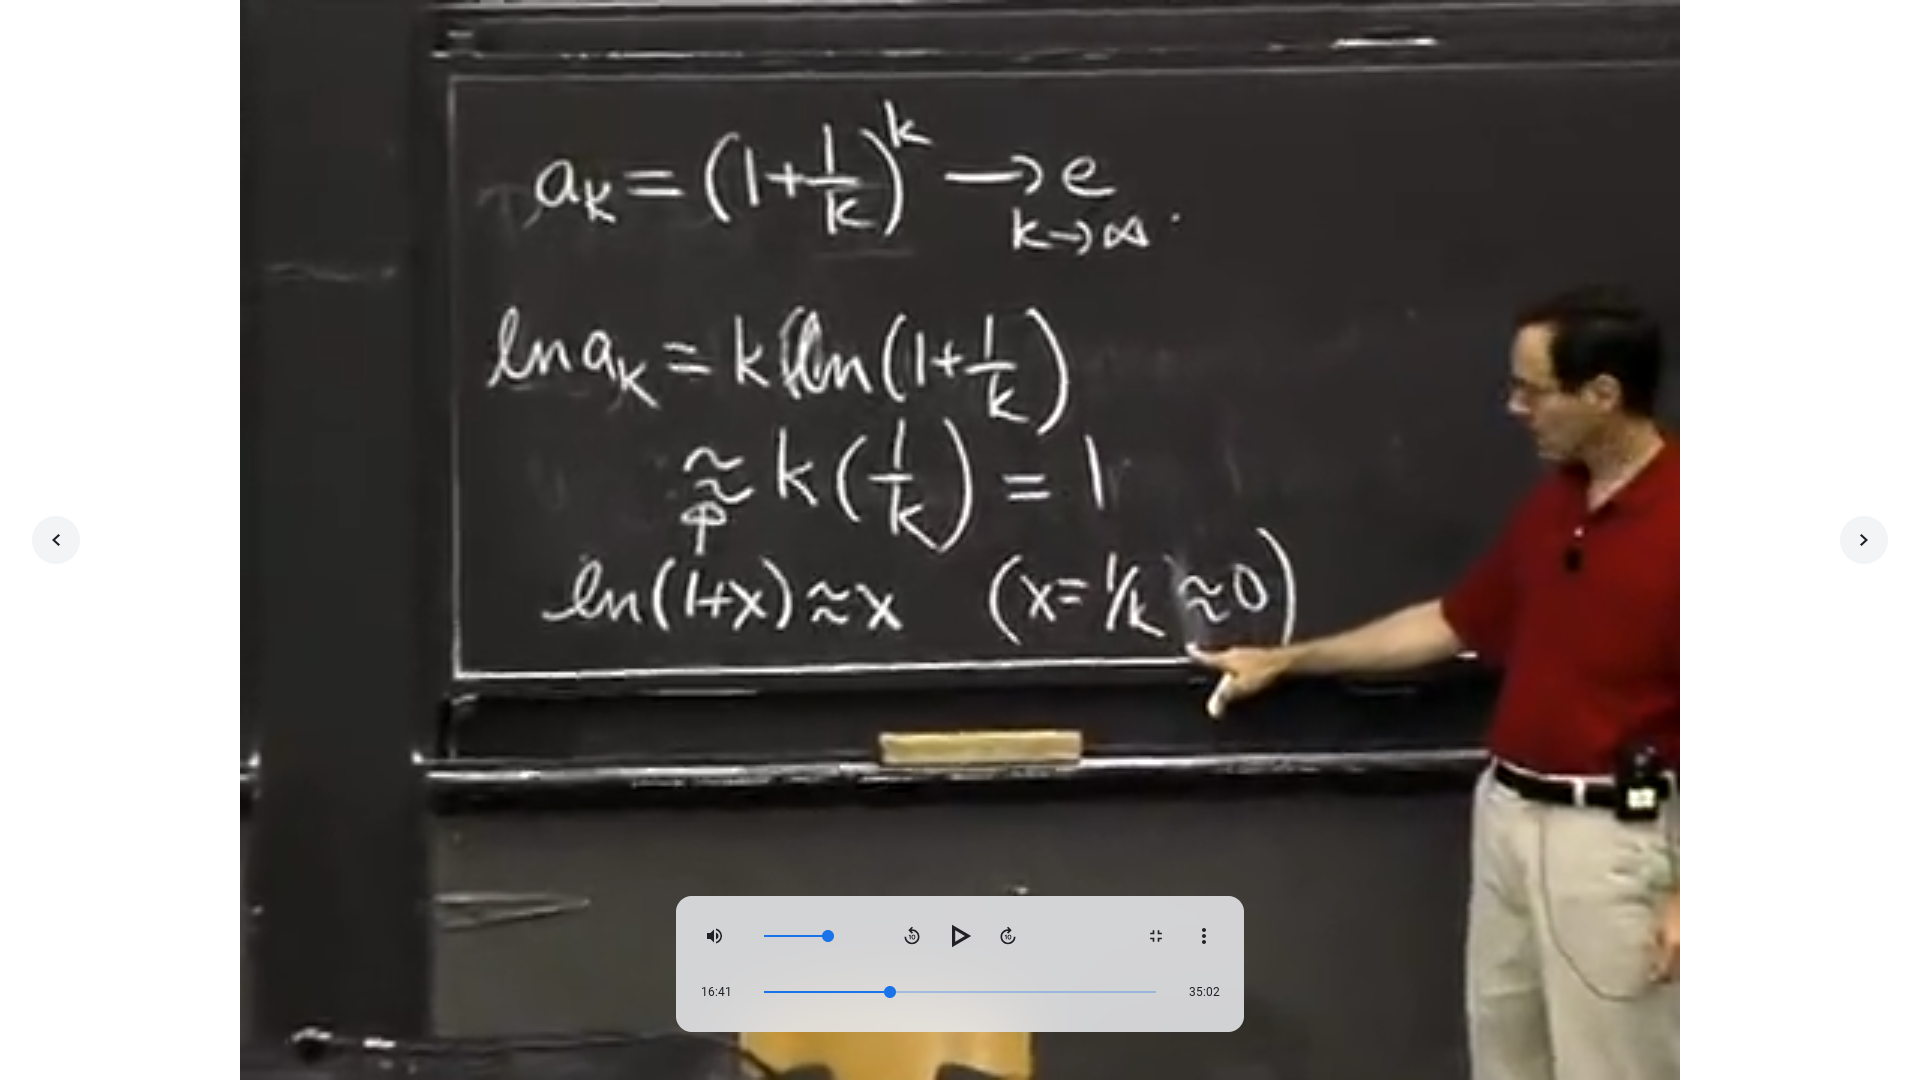 aₖ = (1+1/k)^k → e
k→∞
ln aₖ = k ln(1+1/k)
≈ k(1/k) = 1
ln(1+x) ≈ x (x = 1/k ≈ 0)
10 10
16:41 35:02